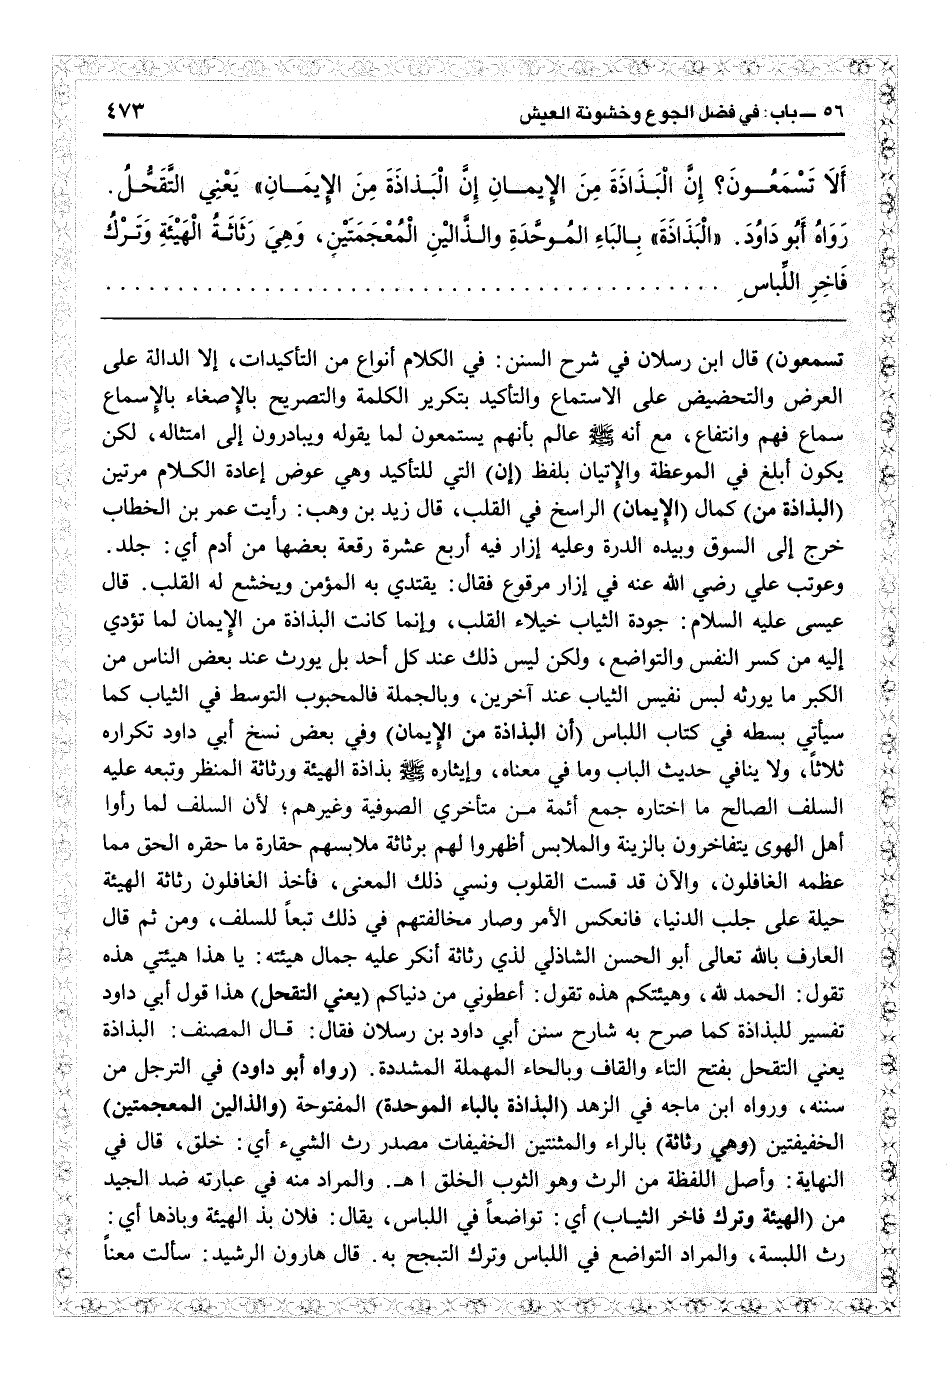 ٥٦ ــ باب: في فضل الجوع وخشونة العيش
٤٧٣
أَلَا تَسْمَعُــونَ؟ إِنَّ الْبَـذَاذَةَ مِنَ الإِيمـانِ إِنَّ الْبَـذَاذَةَ مِنَ الإِيمَـانِ» يَعْنِي التَّقَحُّلُ.
رَوَاهُ أَبُو دَاوُدَ. «الْبَذَاذَةُ» بِـالبَاءِ المُـوحَّدَةِ والـذَّالَيْنِ الْمُعْجَمَتَيْنِ، وَهِيَ رَثَاثَـةُ الْهَيْئَةِ وَتَـرْكُ
فَاخِرِ اللِّباسِ . . . . . . . . . . . . . . . . . . . . . . . . . . . . . . . . . . . . . . . . . . .
تسمعون) قال ابن رسلان في شرح السنن: في الكلام أنواع من التأكيدات، إلا الدالة على
العرض والتحضيض على الاستماع والتأكيد بتكرير الكلمة والتصريح بالإصغاء بالإسماع
سماع فهم وانتفاع، مع أنه ﷺ عالم بأنهم يستمعون لما يقوله ويبادرون إلى امتثاله، لكن
يكون أبلغ في الموعظة والإتيان بلفظ (إن) التي للتأكيد وهي عوض إعادة الكـلام مرتين
(البذاذة من) كمال (الإيمان) الراسخ في القلب، قال زيد بن وهب: رأيت عمر بن الخطاب
خرج إلى السوق وبيده الدرة وعليه إزار فيه أربع عشرة رقعة بعضها من أدم أي: جلد.
وعوتب علي رضي الله عنه في إزار مرقوع فقال: يقتدي به المؤمن ويخشع له القلب. قال
عيسى عليه السلام: جودة الثياب خيلاء القلب، وإنما كانت البذاذة من الإيمان لما تؤدي
إليه من كسر النفس والتواضع، ولكن ليس ذلك عند كل أحد بل يورث عند بعض الناس من
الكبر ما يورثه لبس نفيس الثياب عند آخرين، وبالجملة فالمحبوب التوسط في الثياب كما
سيأتي بسطه في كتاب اللباس (أن البذاذة من الإيمان) وفي بعض نسخ أبي داود تكراره
ثلاثاً، ولا ينافي حديث الباب وما في معناه، وإيثاره ﷺ بذاذة الهيئة ورثاثة المنظر وتبعه عليه
السلف الصالح ما اختاره جمع أئمة مـن متأخري الصوفية وغيرهم؛ لأن السلف لما رأوا
أهل الهوى يتفاخرون بالزينة والملابس أظهروا لهم برثاثة ملابسهم حقارة ما حقره الحق مما
عظمه الغافلون، والآن قد قست القلوب ونسي ذلك المعنى، فأخذ الغافلون رثاثة الهيئة
حيلة على جلب الدنيا، فانعكس الأمر وصار مخالفتهم في ذلك تبعاً للسلف، ومن ثم قال
العارف بالله تعالى أبو الحسن الشاذلي لذي رثاثة أنكر عليه جمال هيئته: يا هذا هيئتي هذه
تقول: الحمد لله، وهيئتكم هذه تقول: أعطوني من دنياكم (يعني التقحل) هذا قول أبي داود
تفسير للبذاذة كما صرح به شارح سنن أبي داود بن رسلان فقال: قـال المصنف: البذاذة
يعني التقحل بفتح التاء والقاف وبالحاء المهملة المشددة. (رواه أبو داود) في الترجل من
سننه، ورواه ابن ماجه في الزهد (البذاذة بالباء الموحدة) المفتوحة (والذالين المعجمتين)
الخفيفتين (وهي رثاثة) بالراء والمثنتين الخفيفات مصدر رث الشيء أي: خلق، قال في
النهاية: وأصل اللفظة من الرث وهو الثوب الخلق ا هـ. والمراد منه في عبارته ضد الجيد
من (الهيئة وترك فاخر الثيـاب) أي: تواضعاً في اللباس، يقال: فلان بذ الهيئة وباذها أي:
رث اللبسة، والمراد التواضع في اللباس وترك التبجح به. قال هارون الرشيد: سألت معناً